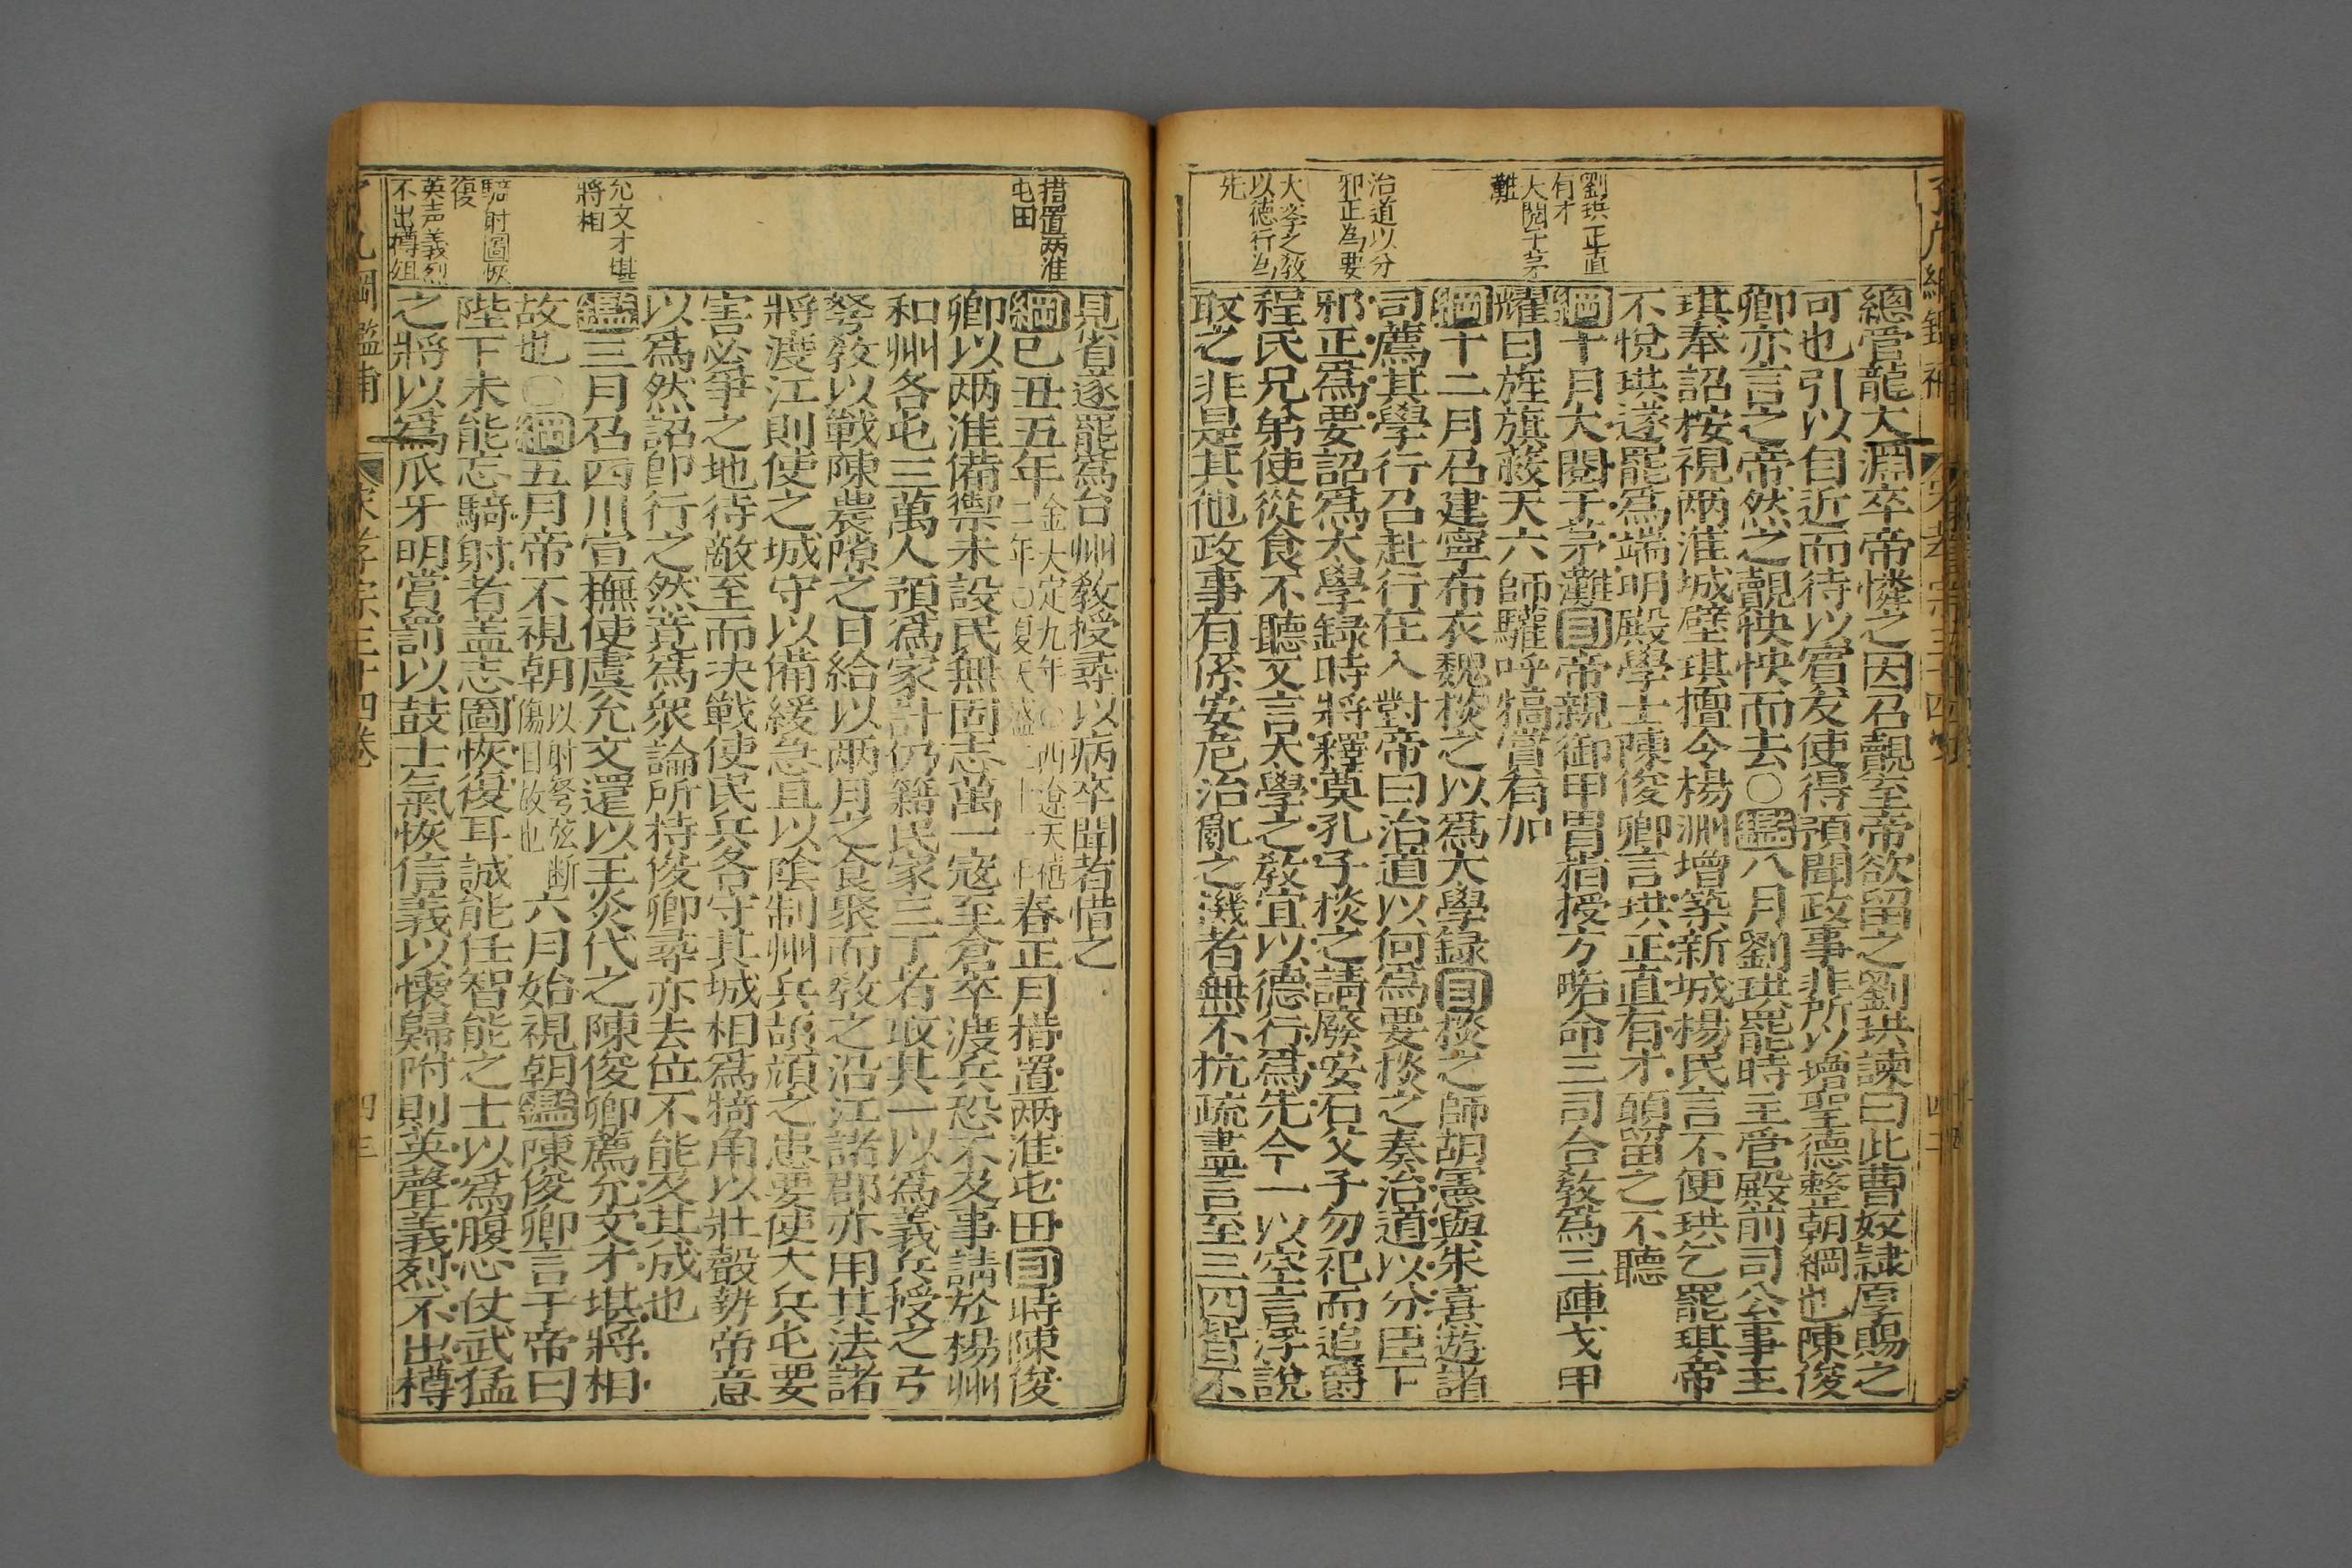 劉珙正直
有才
大閱于茅
難
治道以分
邪正為要
大孝之敎
以德行為
先
總管龍大淵卒帝憐之因召覿至帝欲留之劉珙諫曰此曹奴隷厚賜之
可也引以自近而待以賓友使得預聞政事非所以增聖德整朝綱也陳俊
卿亦言之帝然之覿怏怏而去○鑑八月劉珙罷時主管殿前司公事王
琪奉詔按視两淮城壁琪擅令楊洲增築新城楊民言不便珙乞罷琪帝
不悅珙遂罷為端明殿學士陳俊卿言珙正直有才願留之不聽
綱十月大閱于茅灘目帝親御甲冑指授方略命三司合教為三陣戈甲
耀日旌旗蔽天六師驩呼犒賞有加
綱十二月召建寧布衣魏掞之以爲大學録目掞之師胡憲與朱熹遊諸
司薦其學行召赴行在入對帝曰治道以何爲要掞之奏治道以分臣下
邪正爲要詔爲太學録時將釋奠孔子掞之請廢安石父子勿祀而追爵
程氏兄弟使從食不聽又言太學之敎宜以德行爲先今一以空言浮說
取之非是其他政事有係安危治亂之溪者無不抗疏盡言至三四皆不
措置两淮
屯田
允文才堪
將相
騎射圖恢
復
英声義烈
不出樽俎
見省遂罷爲台州敎授尋以病卒聞者惜之
綱己丑五年金大定九年○西遼天禧二年○夏天盛二十一年春正月措置两淮屯田目時陳俊
卿以两淮備禦未設民無固志萬一寇至倉卒渡兵恐不及事請於楊州
和州各屯三萬人預爲家計仍籍民家三丁者取其一以爲義兵授之弓
弩敎以戰陳農隙之日給以兩月之食聚而敎之沿江諸郡亦用其法諸
將渡江則使之城守以備緩急且以陰制州兵頡頏之患要使大兵屯要
害必爭之地待敵至而决戰使民兵各守其城相爲犄角以壯聲勢帝意
以爲然詔即行之然竟爲衆論所持俊卿尋亦去位不能及其成也
鑑三月召四川宣撫使虞允文還以王炎代之陳俊卿薦允文才堪將相
故也○綱五月帝不視朝以射弩弦断傷目故也六月始視朝鑑陳俊卿言于帝曰
陛下未能忘騎射者盖志圖恢復耳誠能任智能之士以爲腹心仗武猛
之將以爲爪牙明賞罰以鼓士氣恢信義以懷歸附則英聲義烈不出樽
綱鑑補 宋孝宗三十四卷 四三